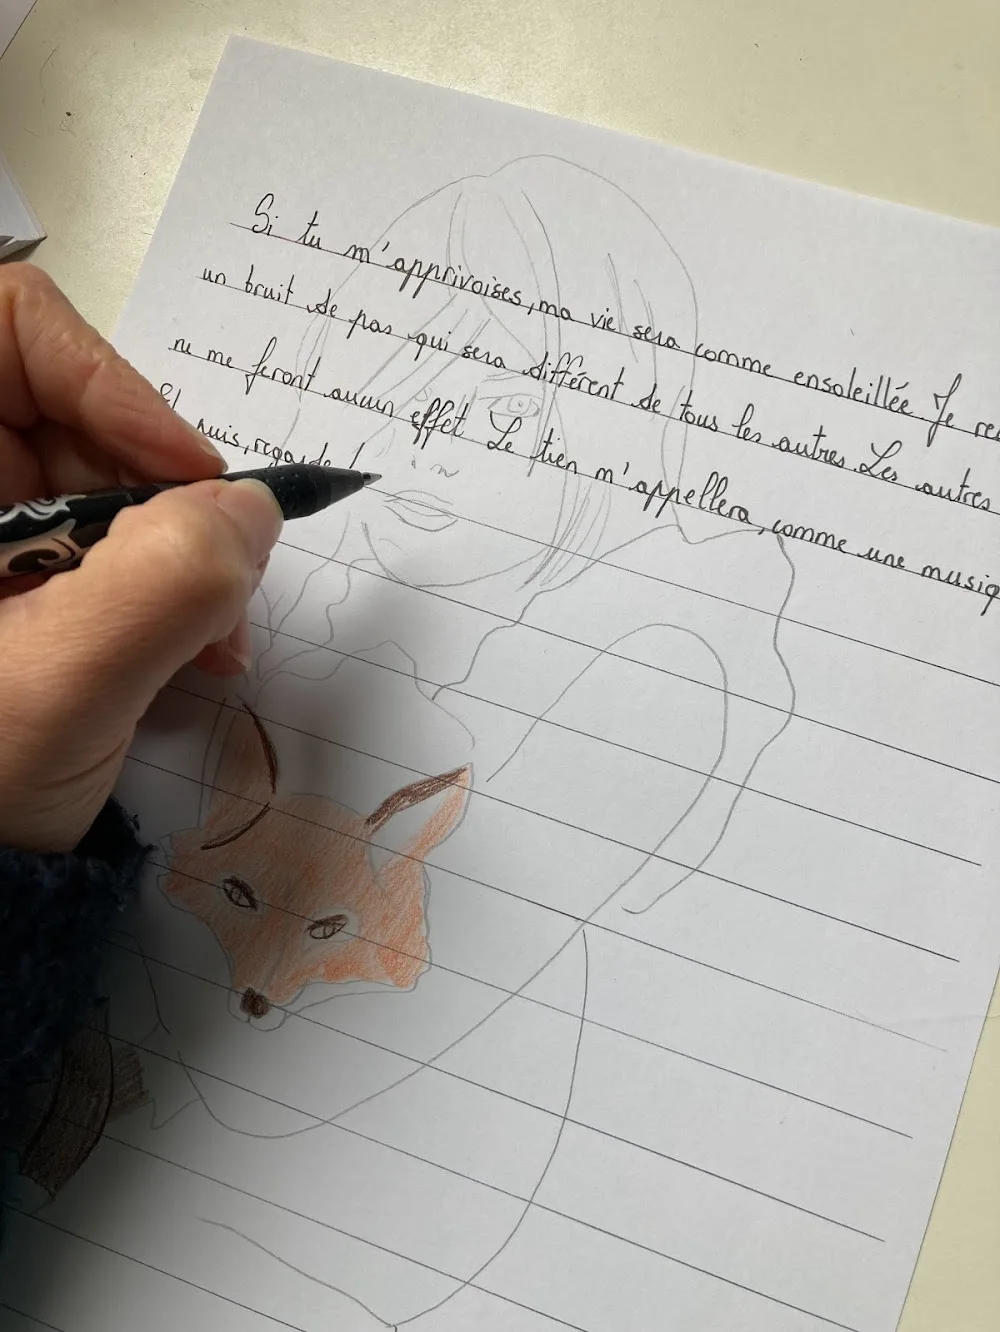 Si tu m'apprivoises, ma vie sera comme ensoleillée Je
un bruit de pas qui sera différent de tous les autres. Les autres
ne me feront aucun effet Le tien m'appellera, comme une musiq
Et puis, regarde !